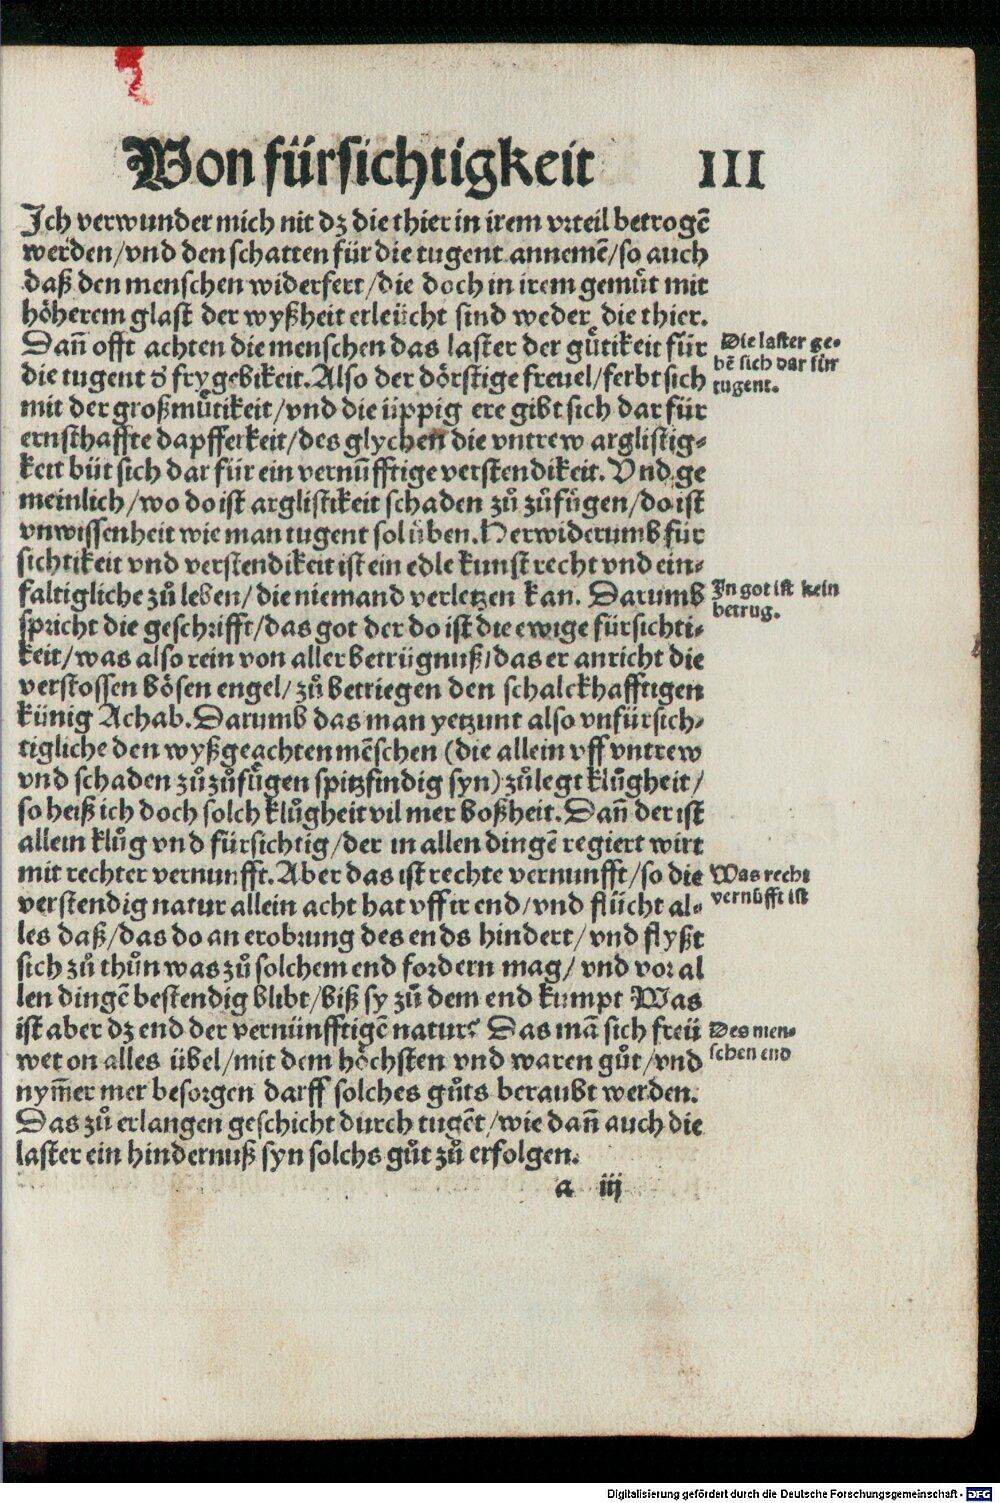 Von fürsichtigkeit III
Ich verwunder mich nit dz die thier in irem vrteil betrogē
werden/vnd den schatten für die tugent annemē/so auch
daß den menschen widerfert/die doch in irem gemüt mit
höherem glast der wyßheit erleücht sind weder die thier.
Dañ offt achten die menschen das laster der gütikeit für
die tugent d̕ frygebikeit. Also der dörstige freuel/ferbt sich
mit der großmütikeit/vnd die üppig ere gibt sich dar für
ernsthaffte dapfferkeit/des glychen die vntrew arglistig-
keit büt sich dar für ein vernüfftige verstendikeit. Vnd ge
meinlich/wo do ist arglistikeit schaden zů zůfügen/do ist
vnwissenheit wie man tugent sol üben. Herwiderumb für
sichtikeit vnd verstendikeit ist ein edle kunst recht vnd ein-
faltigliche zů leben/die niemand verletzen kan. Darumb
spricht die geschrifft/das got der do ist die ewige fürsichti-
keit/was also rein von aller betrügnuß/das er anricht die
verstossen bösen engel/zů betriegen den schalckhafftigen
künig Achab. Darumb das man yetzunt also vnfürsich-
tigliche den wyßgeachten mēschen (die allein vff vntrew
vnd schaden zůzůfügen spitzfindig syn) zůlegt klůgheit/
so heiß ich doch solch klůgheit vil mer boßheit. Dañ der ist
allein klůg vnd fürsichtig/der in allen dingē regiert wirt
mit rechter vernunfft. Aber das ist rechte vernunfft/so die
verstendig natur allein acht hat vff ir end/vnd flücht al-
les daß/das do an erobrung des ends hindert/vnd flyßt
sich zů thůn was zů solchem end fordern mag/vnd vor al
len dingē bestendig blibt/biß sy zů dem end kumpt Was
ist aber dz end der vernünfftigē natur? Das mā sich freü
wet on alles übel/mit dem höchsten vnd waren gůt/vnd
nym̄er mer besorgen darff solches gůts beraubt werden.
Das zů erlangen geschicht durch tugēt/wie dañ auch die
laster ein hindernuß syn solchs gůt zů erfolgen.
a iij
Die laster ge-
bē sich dar für
tugent.
In got ist kein
betrug.
Was recht
vernüfft ist
Des men-
schen end
Digitalisierung gefördert durch die Deutsche Forschungsgemeinschaft - DFG